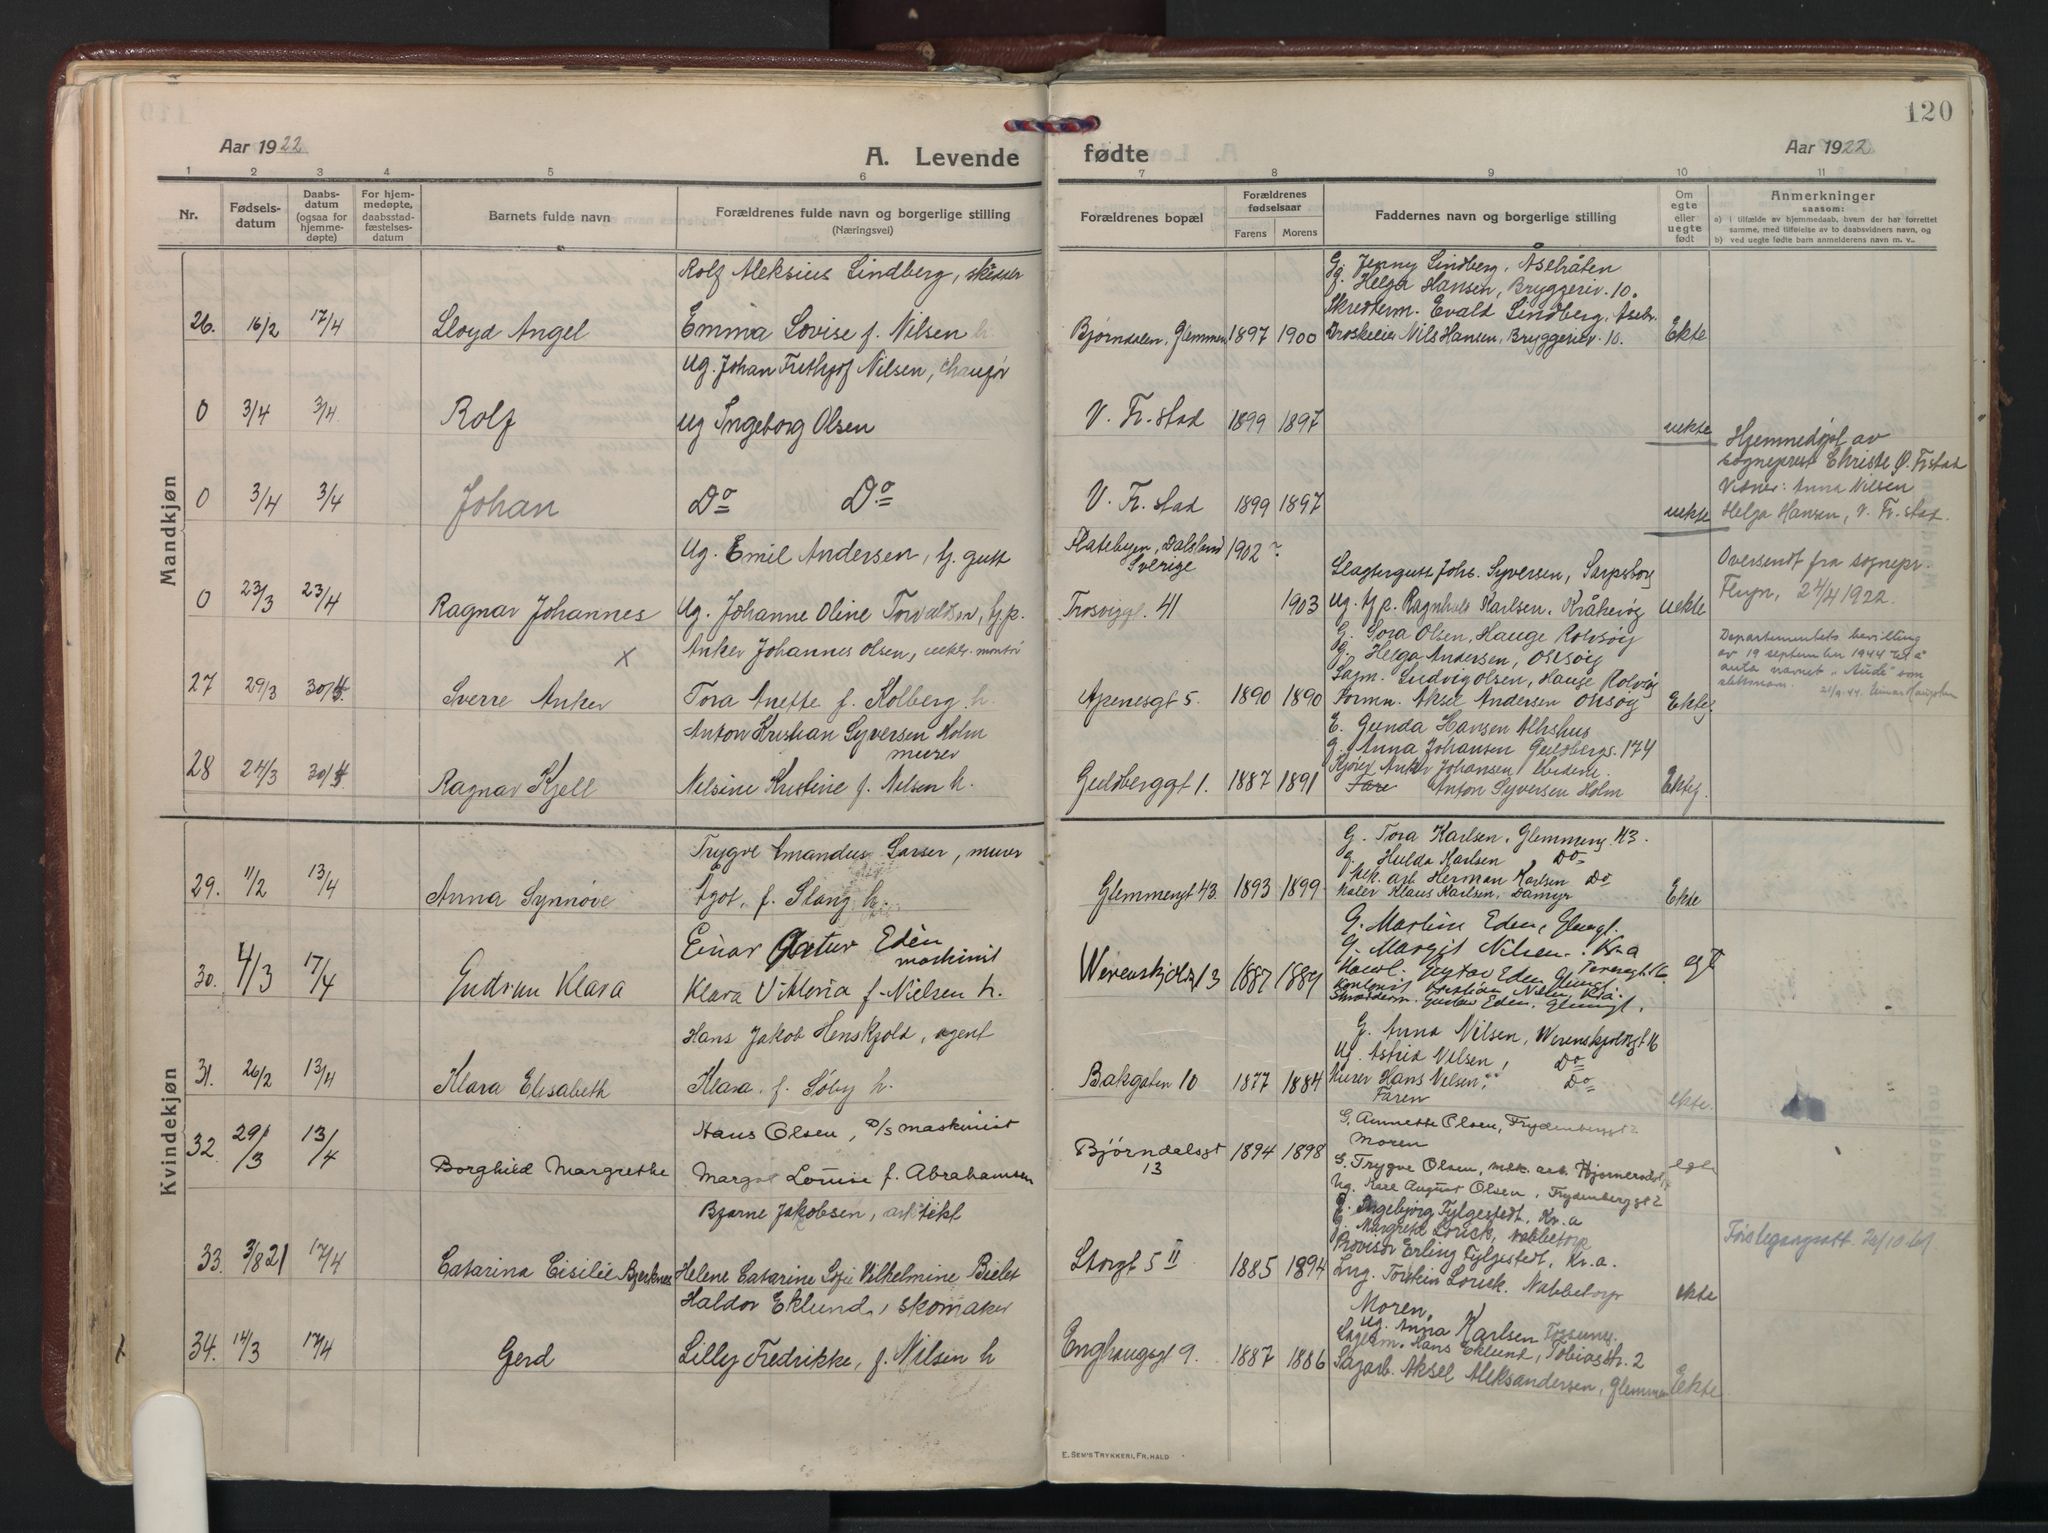 120
Aar 1922
A. Levende
fødte
Aar 1922
1 2 3 4 5 6 7 8 9 10 11
Nr.
Fødsels-
datum
Daabs-
datum
(ogsaa for
hjemme-
døpte)
For hjem-
medøpte,
daabsstad-
fæstelses-
datum
Barnets fulde navn
Forældrenes fulde navn og borgerlige stilling
(Næringsvei)
Forældrenes bopæl
Forældrenes
fødselsaar
Farens Morens
Faddernes navn og borgerlige stilling
Om
egte
eller
uegte
født
Anmerkninger
saasom:
a) i tilfælde av hjemmedaab, hvem der har forrettet
samme, med tilføielse av to daabsvidners navn, og
b) ved uegte fødte barn anmelderens navn m. v..
Mandkjøn
Rolf Aleksius Lindberg,
26. 16/2 17/4 Lloyd Angel Emma Lovise f. Nilsen h
Bjørndalen, Glemmen 1897 1900
G. Jenny Lindberg,
f. Helga Hansen, Bryggeriv. 10.
Skredderm. Evald Lindberg,
Nils Hansen, Bryggeriv. 10. Ekte
Ug. Johan Frithjof Nilsen, chauför
0 3/4 3/4 Rolf Ug Ingeborg Olsen
V. Fr. stad 1899 1897 uekte
Hjemmedøpt av
sogneprest Christie Ø. Frstad
Vidner: Anna Nilsen
Helga Hansen, V. Fr. stad.
0 3/4 3/4 Johan Do Do
V. Fr. stad 1899 1897 uekte
Ug. Emil Andersen, tj. gutt
Dalsland 1902
Sverige
0 23/3 23/4 Ragnar Johannes Ug. Johanne Oline Torvaldsen, tj.p.
Trosviggt. 41 1903
Slagtergutt Johs. Syversen, Sarpsborg
Ug. tj p. Ragnhild Karlsen, Kråkerøy uekte
Oversendt fra sognepr.
24/4 1922.
X Anker Johannes Olsen, montör
27 29/3 30/4 Sverre Anker Tora Anette f. Kolberg h.
Apenesgt 5. 1890 1890
G. Tora Olsen, Hauge Rolvsøy
G. Helga Andersen,
Ludvig Olsen, Hauge Rolvsøy
Formn. Aksel Andersen Ektef
Departementets bevilling
av 19 september 1944 til å
anta navnet "Aude" som
slektsnavn.
Anton Kristian Syversen Holm
murer
28 24/3 30/4 Ragnar Kjell Nelsine Kristine f. Nilsen h.
Guldberggt 1. 1887 1891
E. Gunda Hansen
G. Anna Johansen Guldbergs. 174
Anker Johansen ibidem.
Anton Syversen Holm Ektef.
Kvindekjøn
Trygve Amandus Larsen, murer
29. 11/2 13/4 Anna Synnøve Agot, f. Stang h.
Glemmengt 43. 1893 1899
G. Tora Karlsen, Glemmeng 43.
g. Hulda Karlsen Do
mek. arb Herman Karlsen Do
Maler Klaus Karlsen, Damyr Ekte
Einar Artur Edén
maskinist
30. 4/3 17/4 Gudrun Klara Klara Viktoria f. Nielsen h.
Werenskjolgt 3 1887 1889
G. Martine Eden, Glengt.
G. Margit Nilsen. Kr.a
Gustav Eden, Glengt.
egt
Hans Jakob Henskjold, agent
31. 26/2 13/4 Klara Elisabeth Klara, f. Søby h.
Bakgaten 10 1877 1884
G. Anna Nilsen, Werenskjoldsgt 16
Ug. Astrid Nilsen, Do
Murer Hans Nilsen, Do
Faren ekte.
Hans Olsen, D/S maskinist
32. 29/3 13/4 Borghild Margrethe Margot Louise f. Abrahamsen
Bjørndalsgt
13 1894 1898
G. Annette Olsen, Frydenberggt 2
Moren
G. Trygve Olsen, mek. arb.
Ug. Kare August Olsen, Frydenberggt 2
Bjarne Jakobsen, arkitekt
33. 3/8 21 17/4 Catarina Cisilie Bjerknes Helene Catarine Sofie Vilhelmine Bielet
Storgt 5 II 1885 1894
E. Ingebjørg Fylgestedt, Kr.a
G. Margrete Lorick, Nabbetorp
Provisor Erling Fylgestedt, Kr.a.
Ing. Torstein Lorick. Nabbetorp ekte
Haldor Eklund, skomaker
34. 14/3 17/4 Gerd Lilly Fredrikke, f. Nilsen h
Enghaugsgt 9. 1887 1886
Moren,
Ug. Anna Karlsen
Hans Eklund, Tobiasstr. 2
Sagarb. Aksel Aleksandersen, Glemmen Ekte
E. SEM'S TRYKKERI, FR.HALD